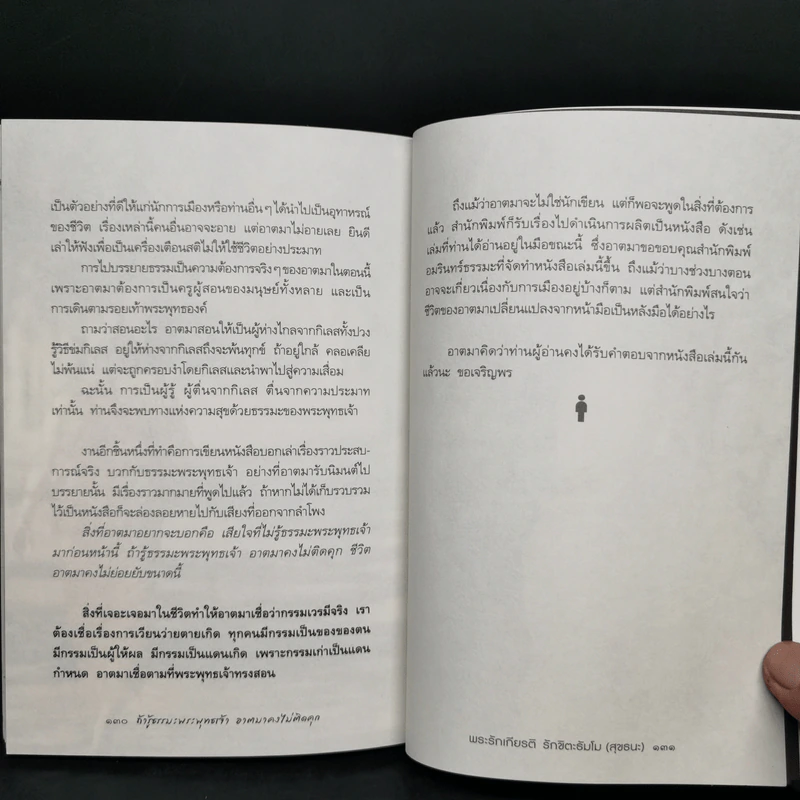 เป็นตัวอย่างที่ดีให้แก่นักการเมืองหรือท่านอื่นๆ ได้นำไปเป็นอุทาหรณ์
ของชีวิต เรื่องเหล่านี้คนอื่นอาจจะอาย แต่อาตมาไม่อายเลย ยินดี
เล่าให้ฟังเพื่อเป็นเครื่องเตือนสติไม่ให้ใช้ชีวิตอย่างประมาท
การไปบรรยายธรรมเป็นความต้องการจริงๆ ของอาตมาในตอนนี้
เพราะอาตมาต้องการเป็นครูผู้สอนของมนุษย์ทั้งหลาย และเป็น
การเดินตามรอยเท้าพระพุทธองค์
ถามว่าสอนอะไร อาตมาสอนให้เป็นผู้ห่างไกลจากกิเลสทั้งปวง
รู้วิธีข่มกิเลส อยู่ให้ห่างจากกิเลสถึงจะพ้นทุกข์ ถ้าอยู่ใกล้ คลอเคลีย
ไม่พ้นแน่ แต่จะถูกครอบงำโดยกิเลสและนำพาไปสู่ความเสื่อม
ฉะนั้น การเป็นผู้รู้ ผู้ตื่นจากกิเลส ตื่นจากความประมาท
เท่านั้น ท่านจึงจะพบทางแห่งความสุขด้วยธรรมะของพระพุทธเจ้า
งานอีกชิ้นหนึ่งที่ทำคือการเขียนหนังสือบอกเล่าเรื่องราวประสบ-
การณ์จริง บวกกับธรรมะพระพุทธเจ้า อย่างที่อาตมารับนิมนต์ไป
บรรยายนั้น มีเรื่องราวมากมายที่พูดไปแล้ว ถ้าหากไม่ได้เก็บรวบรวม
ไว้เป็นหนังสือก็จะล่องลอยหายไปกับเสียงที่ออกจากลำโพง
สิ่งที่อาตมาอยากจะบอกคือ เสียใจที่ไม่รู้ธรรมะพระพุทธเจ้า
มาก่อนหน้านี้ ถ้ารู้ธรรมะพระพุทธเจ้า อาตมาคงไม่ติดคุก ชีวิต
อาตมาคงไม่ย่อยยับขนาดนี้
สิ่งที่เจอะเจอมาในชีวิตทำให้อาตมาเชื่อว่ากรรมเวรมีจริง เรา
ต้องเชื่อเรื่องการเวียนว่ายตายเกิด ทุกคนมีกรรมเป็นของของตน
มีกรรมเป็นผู้ให้ผล มีกรรมเป็นแดนเกิด เพราะกรรมเก่าเป็นแดน
กำหนด อาตมาเชื่อตามที่พระพุทธเจ้าทรงสอน
๑๓๐ ถ้ารู้ธรรมะพระพุทธเจ้า อาตมาคงไม่ติดคุก
ถึงแม้ว่าอาตมาจะไม่ใช่นักเขียน แต่ก็พอจะพูดในสิ่งที่ต้องการ
แล้ว สำนักพิมพ์ก็รับเรื่องไปดำเนินการผลิตเป็นหนังสือ ดังเช่น
เล่มที่ท่านได้อ่านอยู่ในมือขณะนี้ ซึ่งอาตมาขอขอบคุณสำนักพิมพ์
อมรินทร์ธรรมะที่จัดทำหนังสือเล่มนี้ขึ้น ถึงแม้ว่าบางช่วงบางตอน
อาจจะเกี่ยวเนื่องกับการเมืองอยู่บ้างก็ตาม แต่สำนักพิมพ์สนใจว่า
ชีวิตของอาตมาเปลี่ยนแปลงจากหน้ามือเป็นหลังมือได้อย่างไร
อาตมาคิดว่าท่านผู้อ่านคงได้รับคำตอบจากหนังสือเล่มนี้กัน
แล้วนะ ขอเจริญพร
พระรักเกียรติ รักขิตะธัมโม (สุขธนะ) ๑๓๑